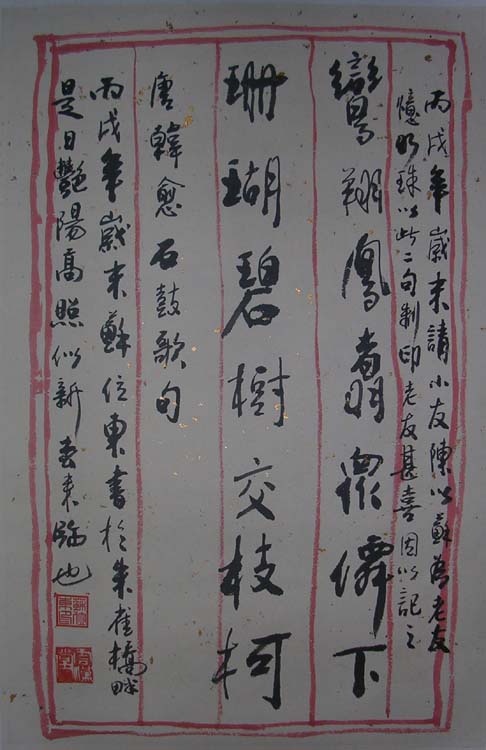 丙戌年歲末請小友陳以蘇為老友
憶明珠以此二句制印老友甚喜因以記之
鸞翔鳳翥眾僊下
珊瑚碧樹交枝柯
唐韓愈石鼓歌句
丙戌年歲末蘇位東書於朱雀橋畔
是日艷陽高照似新春來臨也